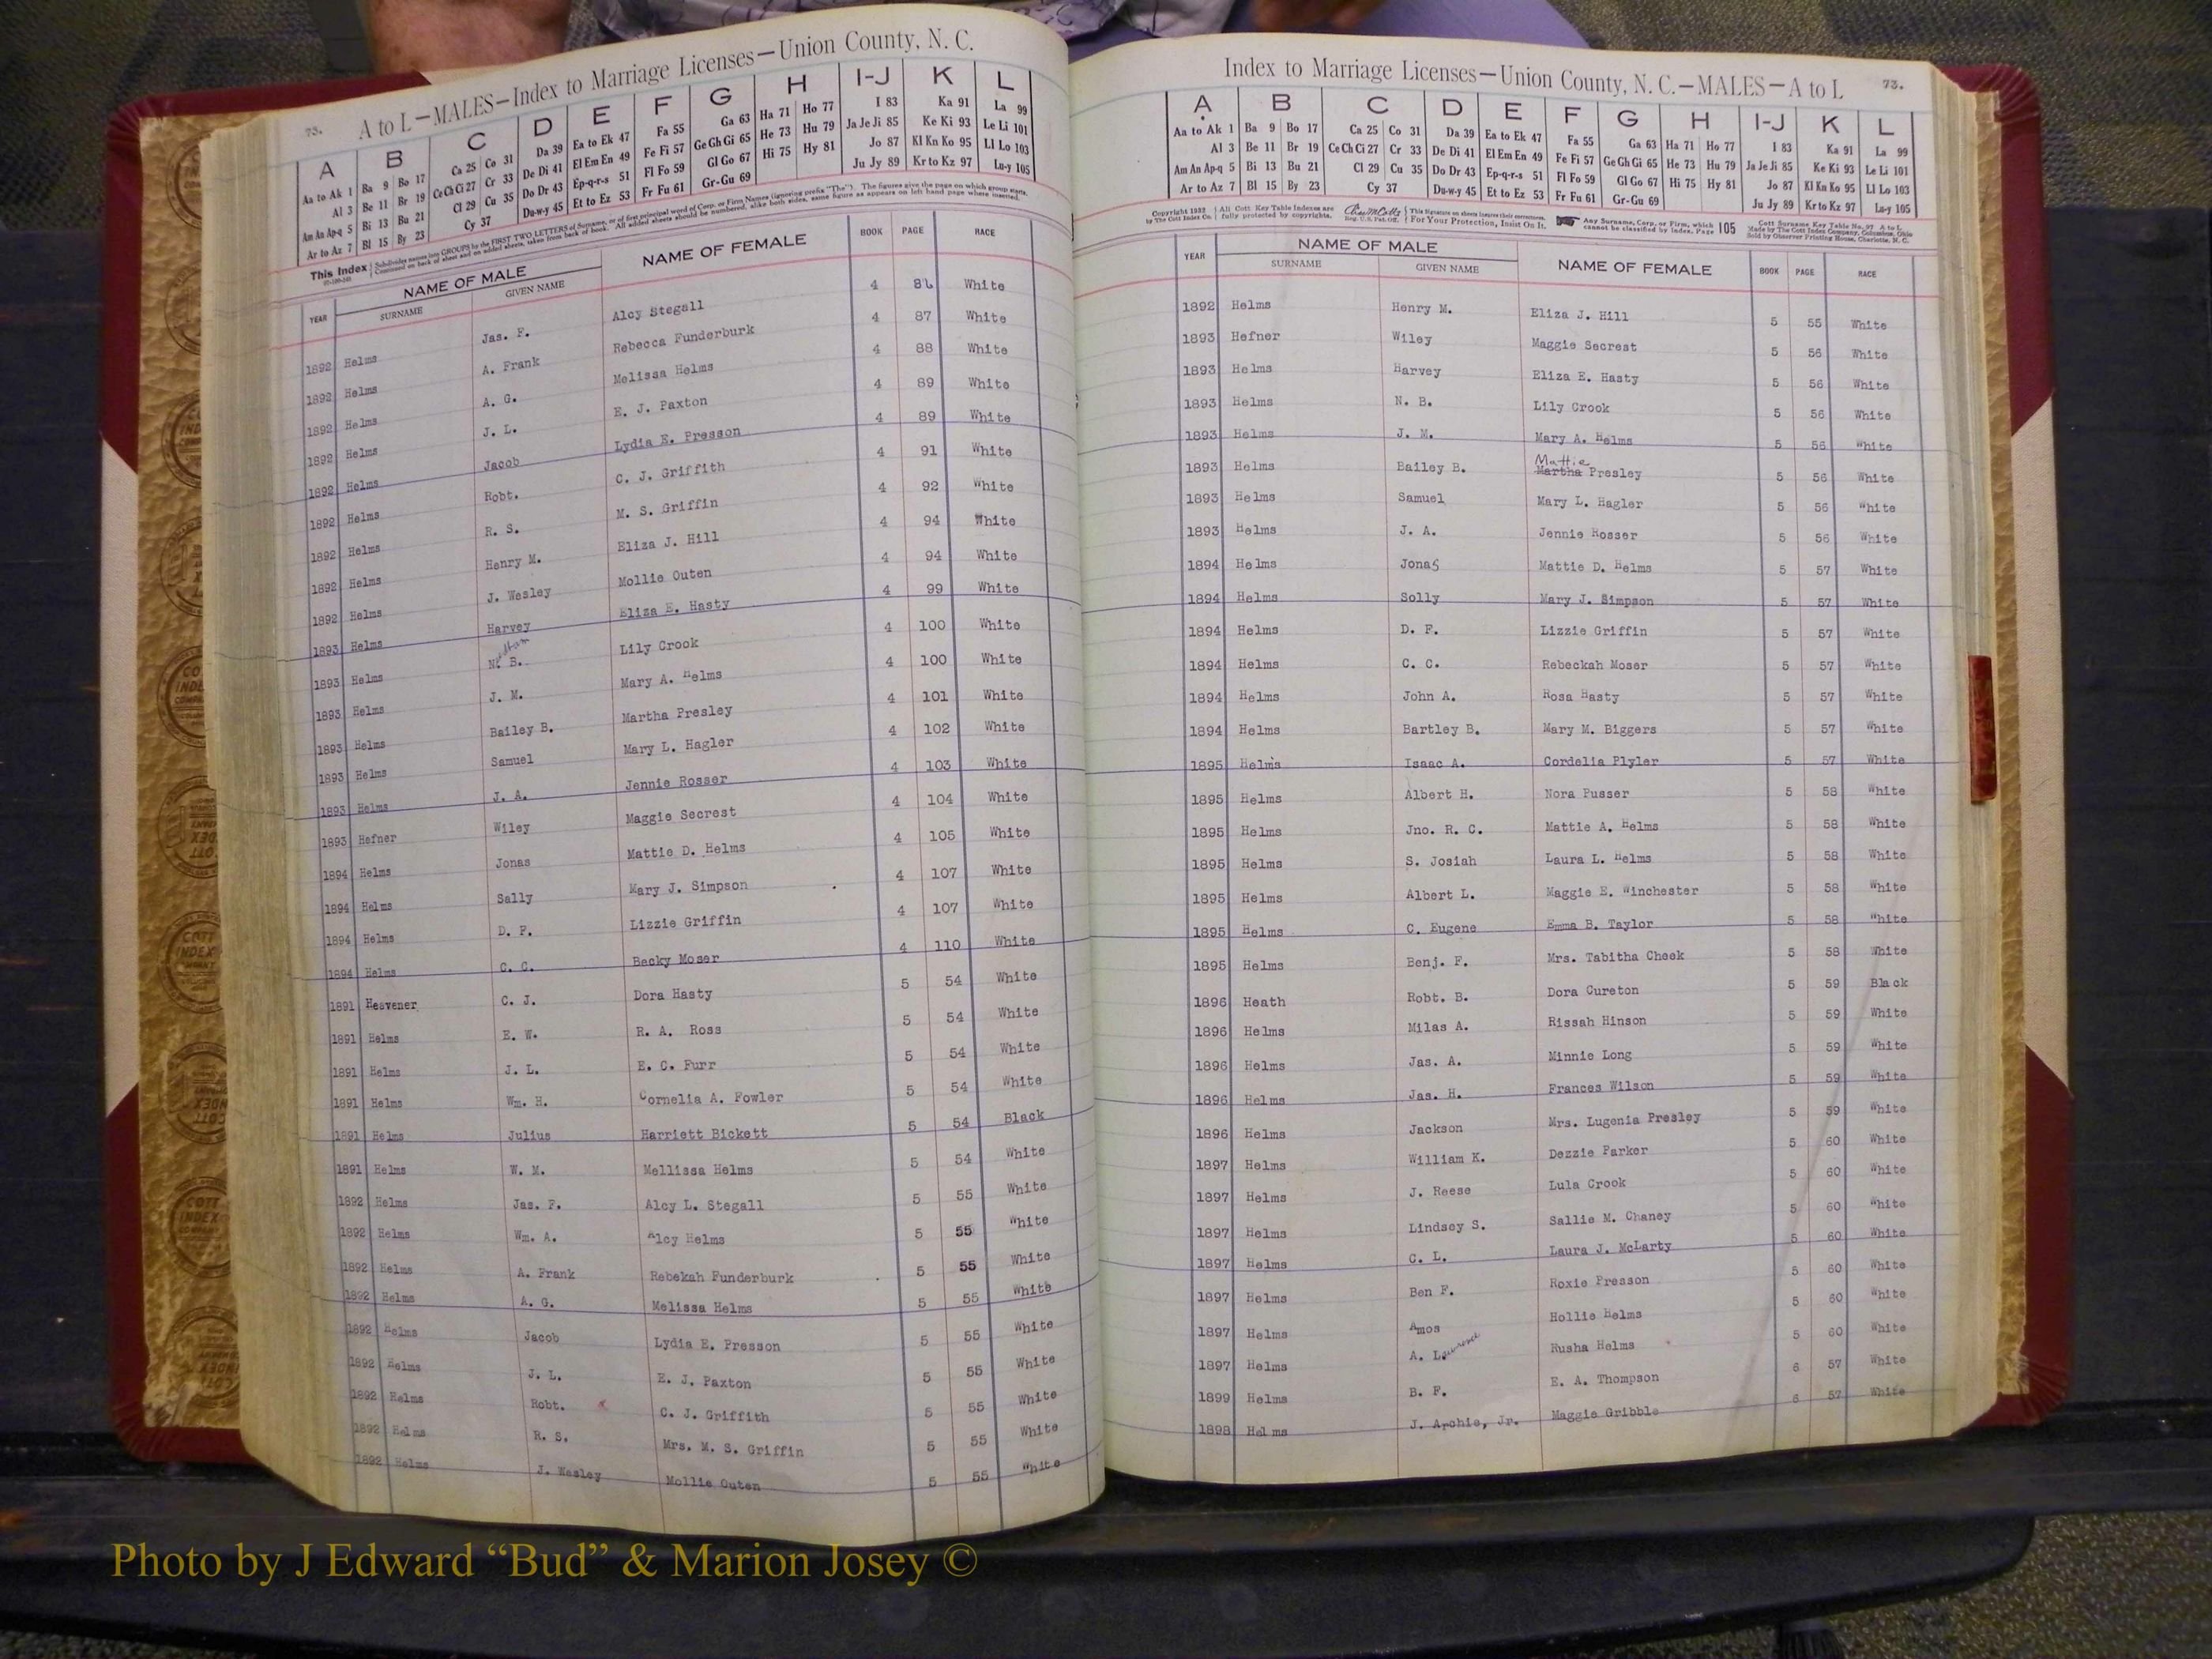 73. A to L—MALES—Index to Marriage Licenses—Union County, N. C.
A B C D E F G H I-J K L
Aa to Ak 1 Ba 9 Bo 17 Ca 25 Co 31 Da 39 Ea to Ek 47 Fa 55 Ga 63 Ha 71 Ho 77 I 83 Ka 91 La 99
Al 3 Be 11 Br 19 Ce Ch Ci 27 Cr 33 De Di 41 El Em En 49 Fe Fi 57 Ge Gh Gi 65 He 73 Hu 79 Ja Je Ji 85 Ke Ki 93 Le Li 101
Am An Ap-q 5 Bi 13 Bu 21 Cl 29 Cu 35 Do Dr 43 Ep-q-r-s 51 Fl Fo 59 Gl Go 67 Hi 75 Hy 81 Jo 87 Kl Kn Ko 95 Ll Lo 103
Ar to Az 7 Bl 15 By 23 Cy 37 Du-w-y 45 Et to Ez 53 Fr Fu 61 Gr-Gu 69 Ju Jy 89 Kr to Kz 97 Lu-y 105
This Index Subdivides names into GROUPS by the FIRST TWO LETTERS of Surname, or of first principal word of Corp. or Firm Names (ignoring prefix "The"). The figures give the page on which group starts.
Continued on back of sheet and on added sheets, taken from back of book. All added sheets should be numbered, alike both sides, same figure as appears on left hand page where inserted.
YEAR NAME OF MALE NAME OF FEMALE BOOK PAGE RACE
SURNAME GIVEN NAME
1892 Helms Jas. F. Alcy Stegall 4 86 White
1892 Helms A. Frank Rebecca Funderburk 4 87 White
1892 Helms A. G. Melissa Helms 4 88 White
1892 Helms J. L. E. J. Paxton 4 89 White
1892 Helms Jacob Lydia E. Presson 4 89 White
1892 Helms Robt. C. J. Griffith 4 91 White
1892 Helms R. S. M. S. Griffin 4 92 White
1892 Helms Henry M. Eliza J. Hill 4 94 White
1892 Helms J. Wesley Mollie Outen 4 94 White
1893 Helms Harvey Eliza E. Hasty 4 99 White
1893 Helms N. B. Lily Crook 4 100 White
1893 Helms J. M. Mary A. Helms 4 100 White
1893 Helms Bailey B. Martha Presley 4 101 White
1893 Helms Samuel Mary L. Hagler 4 102 White
1893 Helms J. A. Jennie Rosser 4 103 White
1893 Hefner Wiley Maggie Secrest 4 104 White
1894 Helms Jonas Mattie D. Helms 4 105 White
1894 Helms Sally Mary J. Simpson 4 107 White
1894 Helms D. F. Lizzie Griffin 4 107 White
1894 Helms C. C. Becky Moser 4 110 White
1891 Heavener C. J. Dora Hasty 5 54 White
1891 Helms E. W. R. A. Ross 5 54 White
1891 Helms J. L. E. C. Furr 5 54 White
1891 Helms Wm. H. Cornelia A. Fowler 5 54 White
1891 Helms Julius Harriett Bickett 5 54 Black
1891 Helms W. M. Mellissa Helms 5 54 White
1892 Helms Jas. F. Alcy L. Stegall 5 55 White
1892 Helms Wm. A. Alcy Helms 5 55 White
1892 Helms A. Frank Rebekah Funderburk 5 55 White
1892 Helms A. G. Melissa Helms 5 55 White
1892 Helms Jacob Lydia E. Presson 5 55 White
1892 Helms J. L. E. J. Paxton 5 55 White
1892 Helms Robt. C. J. Griffith 5 55 White
1892 Helms R. S. Mrs. M. S. Griffin 5 55 White
1892 Helms J. Wesley Mollie Outen 5 55 White
Index to Marriage Licenses—Union County, N. C.—MALES—A to L 73.
A B C D E F G H I-J K L
Aa to Ak 1 Ba 9 Bo 17 Ca 25 Co 31 Da 39 Ea to Ek 47 Fa 55 Ga 63 Ha 71 Ho 77 I 83 Ka 91 La 99
Al 3 Be 11 Br 19 Ce Ch Ci 27 Cr 33 De Di 41 El Em En 49 Fe Fi 57 Ge Gh Gi 65 He 73 Hu 79 Ja Je Ji 85 Ke Ki 93 Le Li 101
Am An Ap-q 5 Bi 13 Bu 21 Cl 29 Cu 35 Do Dr 43 Ep-q-r-s 51 Fl Fo 59 Gl Go 67 Hi 75 Hy 81 Jo 87 Kl Kn Ko 95 Ll Lo 103
Ar to Az 7 Bl 15 By 23 Cy 37 Du-w-y 45 Et to Ez 53 Fr Fu 61 Gr-Gu 69 Ju Jy 89 Kr to Kz 97 Lu-y 105
For Your Protection, Insist On It. Any Surname, Corp. or Firm, which cannot be classified by index, Page 105
YEAR NAME OF MALE NAME OF FEMALE BOOK PAGE RACE
SURNAME GIVEN NAME
1892 Helms Henry M. Eliza J. Hill 5 55 White
1893 Hefner Wiley Maggie Secrest 5 56 White
1893 Helms Harvey Eliza E. Hasty 5 56 White
1893 Helms N. B. Lily Crook 5 56 White
1893 Helms J. M. Mary A. Helms 5 56 White
Mattie
1893 Helms Bailey B. Martha Presley 5 56 White
1893 Helms Samuel Mary L. Hagler 5 56 White
1893 Helms J. A. Jennie Rosser 5 56 White
1894 Helms Jonas Mattie D. Helms 5 57 White
1894 Helms Solly Mary J. Simpson 5 57 White
1894 Helms D. F. Lizzie Griffin 5 57 White
1894 Helms C. C. Rebeckah Moser 5 57 White
1894 Helms John A. Rosa Hasty 5 57 White
1894 Helms Bartley B. Mary M. Biggers 5 57 White
1895 Helms Isaac A. Cordelia Plyler 5 57 White
1895 Helms Albert H. Nora Pusser 5 58 White
1895 Helms Jno. R. C. Mattie A. Helms 5 58 White
1895 Helms S. Josiah Laura L. Helms 5 58 White
1895 Helms Albert L. Maggie E. Winchester 5 58 White
1895 Helms C. Eugene Emma B. Taylor 5 58 White
1895 Helms Benj. F. Mrs. Tabitha Cheek 5 58 White
1896 Heath Robt. B. Dora Cureton 5 59 Black
1896 Helms Milas A. Rissah Hinson 5 59 White
1896 Helms Jas. A. Minnie Long 5 59 White
1896 Helms Jas. H. Frances Wilson 5 59 White
1896 Helms Jackson Mrs. Lugenia Presley 5 59 White
1897 Helms William K. Dezzie Parker 5 60 White
1897 Helms J. Reese Lula Crook 5 60 White
1897 Helms Lindsey S. Sallie M. Chaney 5 60 White
1897 Helms C. L. Laura J. McLarty 5 60 White
1897 Helms Ben F. Roxie Presson 5 60 White
1897 Helms Amos Hollie Helms 5 60 White
1897 Helms A. Lawrence Rusha Helms 5 60 White
1899 Helms B. F. E. A. Thompson 6 57 White
1898 Helms J. Archie, Jr. Maggie Gribble 6 57 White
Photo by J Edward “Bud” & Marion Josey ©